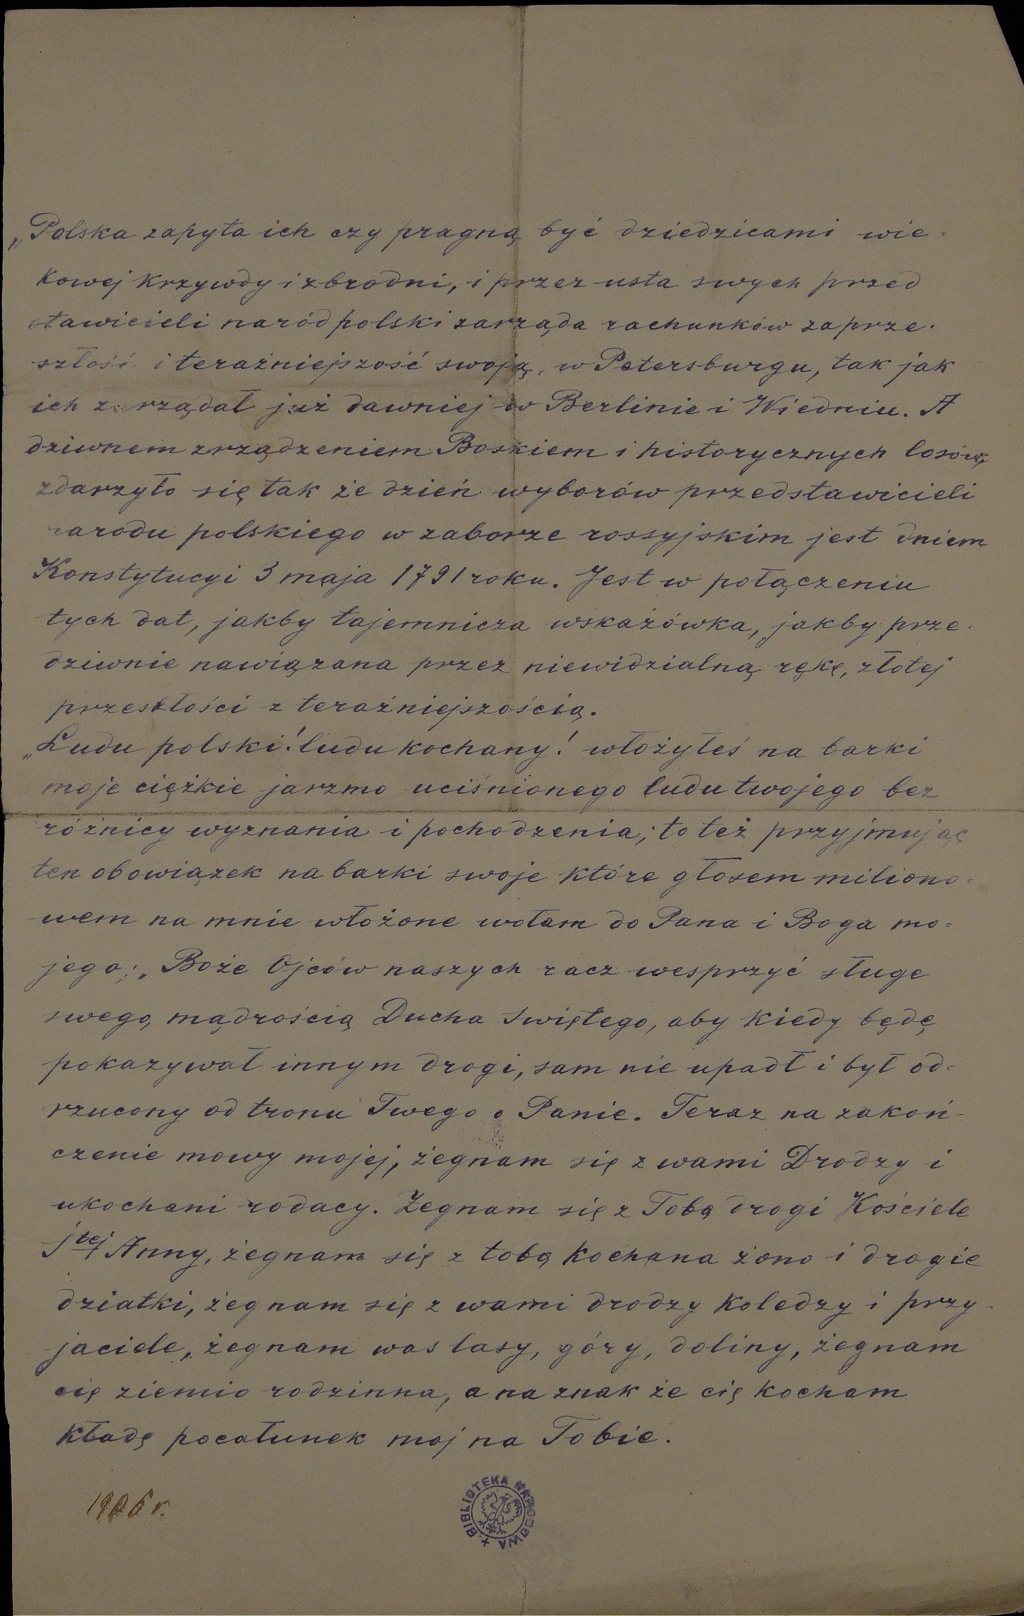 „Polska zapyta ich czy pragną być dziedzicami wie-
kowej krzywdy i zbrodni, i przez usta swych przed
stawicieli naród polski zarząda rachunków za prze-
szłość i teraźniejszość swoją, w Petersburgu, tak jak
ich zarządał już dawniej w Berlinie i Wiedniu. A
dziwnem zrządzeniem Boskiem i historycznych losów
zdarzyło się tak że dzień wyborów przedstawicieli
narodu polskiego w zaborze rossyjskim jest dniem
Konstytucyi 3 maja 1791 roku. Jest w połączeniu
tych dat, jakby tajemnicza wskazówka, jakby prze-
dziwnie nawiązana przez niewidzialną rękę, złotej
przeszłości z teraźniejszością.
„Ludu polski! ludu kochany! włożyłeś na barki
moje ciężkie jarzmo uciśnionego ludu twojego bez
różnicy wyznania i pochodzenia; to też przyjmując
ten obowiązek na barki swoje które głosem miliono-
wem na mnie włożone wołam do Pana i Boga mo-
jego; „Boże Ojców naszych racz wesprzyć sługe
swego, mądrością Ducha Swiętego, aby kiedy będę
pokazywał innym drogi, sam nie upadł i był od-
rzucony od tronu Twego o Panie. Teraz na zakoń-
czenie mowy mojej, żegnam się z wami Drodzy i
ukochani rodacy. Żegnam się z Tobą drogi Kościele
Stej Anny, żegnam się z tobą kochana żono i drogie
dziatki, żegnam się z wami drodzy koledzy i przy-
jaciele, żegnam was lasy, góry, doliny, żegnam
cię ziemio rodzinna, a na znak że cię kocham
kładę pocałunek moj na Tobie.
1906 r.
BIBLIOTEKA NARODOWA